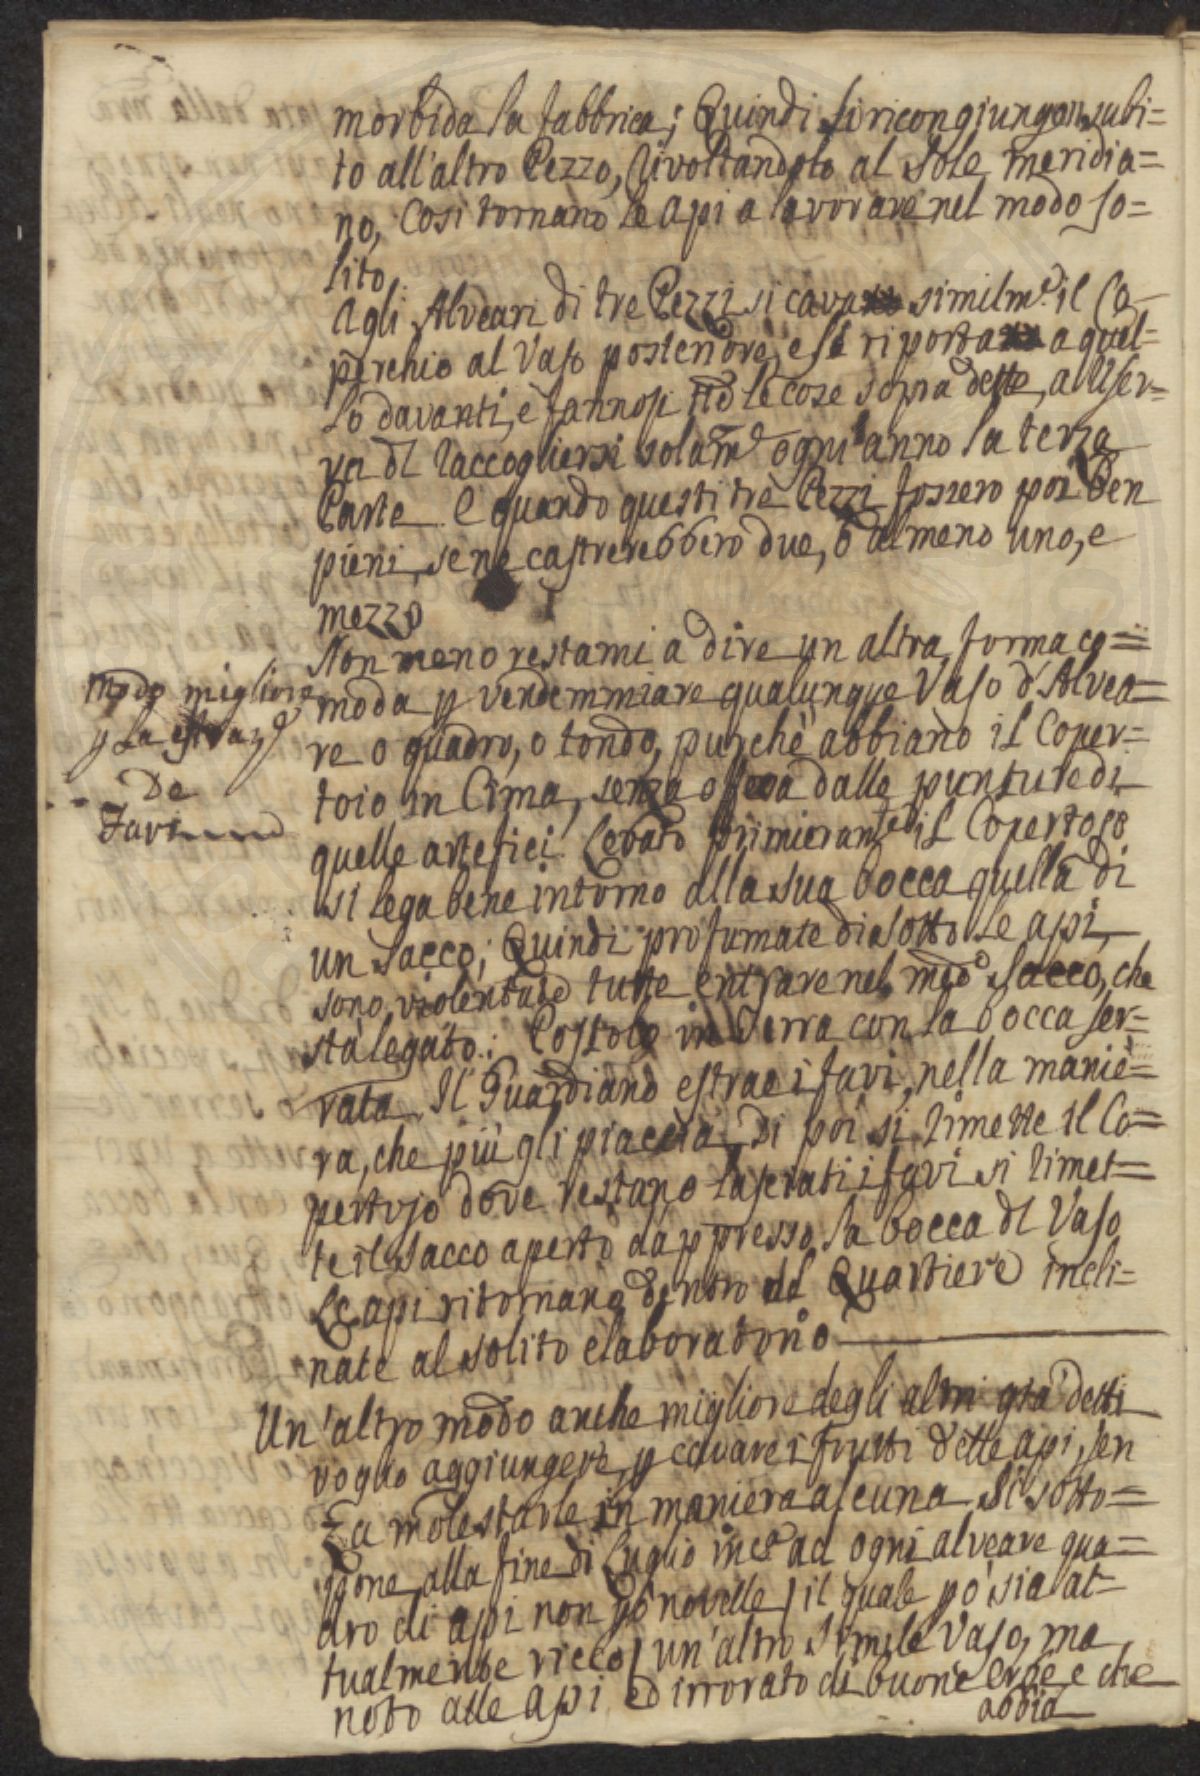 morbida la fabbrica; Quindi si ricongiungon subi=
to all'altro Pezzo, rivoltandolo al Sole meridia=
no, Così tornano le api a lavorare nel modo so=
lito.
Agli Alveari di tre Pezzi si cava similmᵉ il Co-
perchio al Vaso posteriore, e si riporta a quel-
lo davanti, e fannosi ttᵉ le cose sopra dette, a riser-
va dl raccogliersi solamᵉ ogni anno la terza
Parte. E quando questi tre Pezzi fossero poi ben
pieni, se ne castrerebbero due, o almeno uno, e
mezzo
Non meno restami a dire un altra forma co=
moda p vendemmiare qualunque Vaso d'Alvea=
re o quadro, o tondo, purchè abbiano il Coper=
toio in Cima, senza offesa dalle punture di
quelle artefici. Levato primieramᵗᵉ il Copertojo
si lega bene intorno alla sua bocca quella di
un Sacco; Quindi profumate di sotto le api,
sono violentate tutte entrare nel medᵒ Sacco, che
stà legato: Postolo in Terra con la bocca ser=
rata. Il Guardiano estrae i favi, nella manie=
ra, che più gli piaccia, Di poi si rimette il Co=
pertojo dove restano lasciati i favi si rimet=
te il sacco aperto dappresso la bocca dl Vaso
Le api ritornano dentro al Quartiere incli=
nate al solito elaboratorio
Modo migliore
p la estrazᵉ
De
Favi
Un'altro modo anche migliore degli altri già detti
voglio aggiungere, p cavare i frutti delle api, sen
za molestarle in maniera alcuna. Si sotto=
pone alla fine di Luglio incᵃ ad ogni alveare qua=
dro di api non pò novelle, il quale pò sia at=
tualmente ricco, un'altro simile Vaso, ma
noto alle api ed irrorato di buone erbe e che
abbia